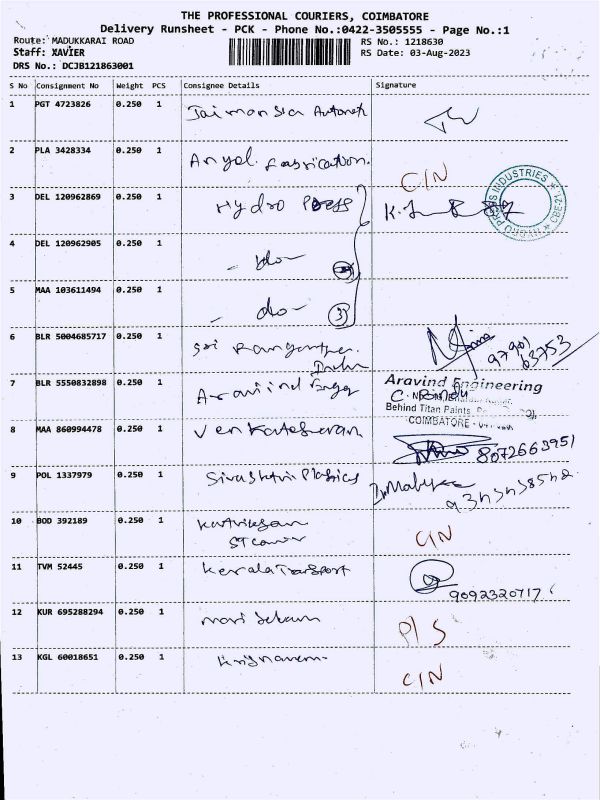 THE PROFESSIONAL COURIERS, COIMBATORE
Delivery Runsheet - PCK - Phone No.:0422-3505555 - Page No.:1
Route: MADUKKARAI ROAD RS No.: 1218630
Staff: XAVIER RS Date: 03-Aug-2023
DRS No.: DCJB121863001
S No Consignment No Weight PCS Consignee Details Signature
1 PGT 4723826 0.250 1
2 PLA 3428334 0.250 1 Fabrication. CIN
3 DEL 120962869 0.250 1 Hydro Press
INDUSTRIES
4 DEL 120962905 0.250 1 - do -
5 MAA 103611494 0.250 1 - do - 3)
6 BLR 5004685717 0.250 1 Sri
97901
63753
7 BLR 5550832898 0.250 1 Aravind Engg Aravind Engineering
Behind Titan Paints,
COIMBATORE
8 MAA 860994478 0.250 1 Venkateswaran 8072663951
9 POL 1337979 0.250 1 Plastics
10 BOD 392189 0.250 1 CIN
11 TVM 52445 0.250 1 Kerala Transport
9092320717
12 KUR 695288294 0.250 1 P/S
13 KGL 60018651 0.250 1 CIN